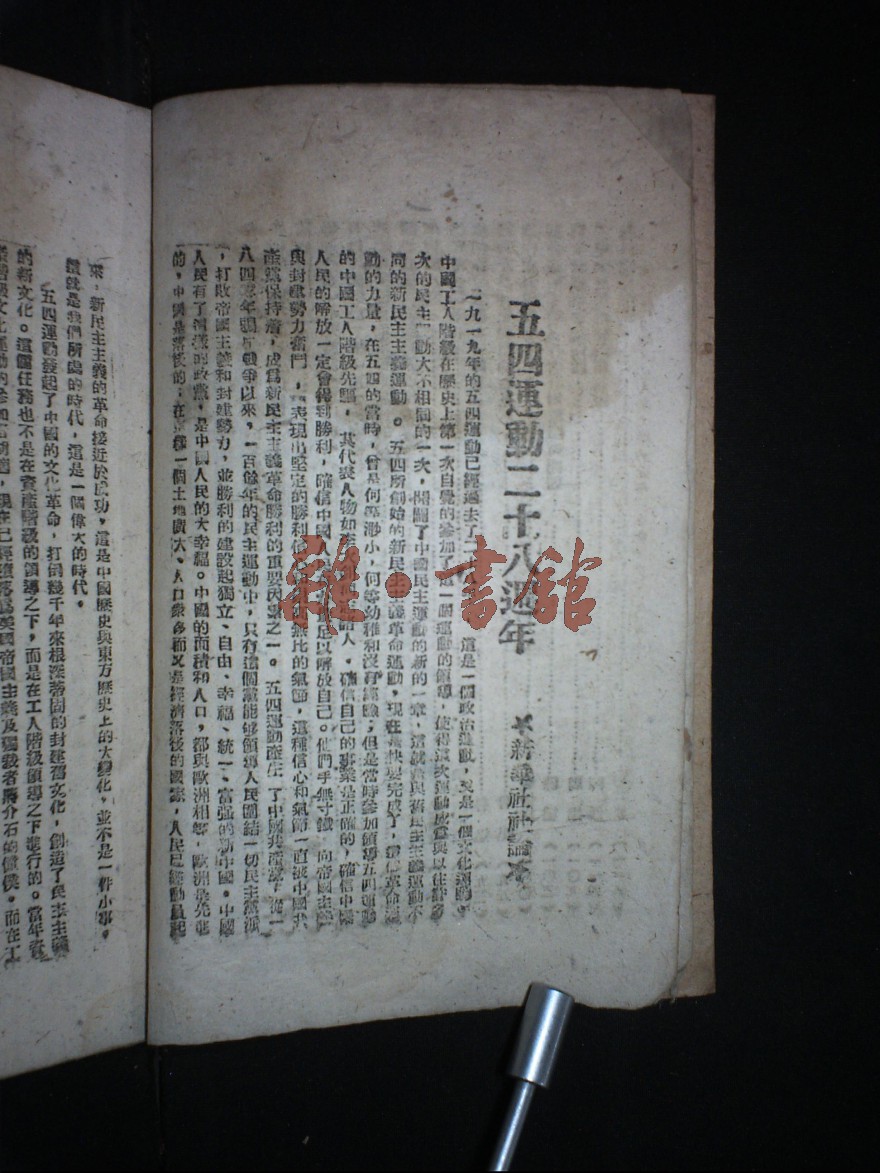 五四運動二十八週年
★新華社社論★
一九一九年的五四運動已經過去了二十八 這是一個政治運動,又是一個文化運動。
中國工人階級在歷史上第一次自覺的參加了 一個運動的領導,使得這次運動成為與以往許多
次的民主運動大不相同的一次,開闢了中國民主運動的新的一章,這就是與舊民主主義運動不
同的新民主主義運動。五四所創始的新民主主義革命運動,現在是快要完成了,這個革命運
動的力量,在五四的當時,曾是何等渺小,何等幼稚和沒有經驗;但是當時參加領導五四運動
的中國工人階級先驅,其代表人物如李 諸人,確信自己的事業是正確的,確信中國
人民的解放一定會得到勝利,確信中國人民 足以解放自己。他們手無寸鐵,向帝國主義
與封建勢力奮鬥,表現出堅定的勝利信心 無比的氣節,這種信心和氣節一直被中國共
產黨保持着,成為新民主主義革命勝利的重要因素之一。五四運動產生了中國共產黨,從一
八四零年鴉片戰爭以來,一百餘年的民主運動中,只有這個黨能够領導人民團結一切民主黨派
,打敗帝國主義和封建勢力,並勝利的建設起獨立、自由、幸福、統一、富强的新中國。中國
人民有了這樣的政黨,是中國人民的大幸福。中國的面積和人口,都與歐洲相等,歐洲是先進
的,中國是落後的;在這樣一個土地廣大、人口衆多而又是經濟落後的國家,人民已經動員起
來,新民主主義的革命接近於成功,這是中國歷史與東方歷史上的大變化,並不是一件小事。
這就是我們所處的時代,這是一個偉大的時代。
五四運動發起了中國的文化革命,打倒幾千年來根深蒂固的封建舊文化,創造了民主主義
的新文化。這個任務也不是在資產階級的領導之下,而是在工人階級領導之下進行的。當年資
產階級文化運動的參加 現在已經墮落為美國帝國主義及獨裁者蔣介石的僕僕。而在工
雜·書館